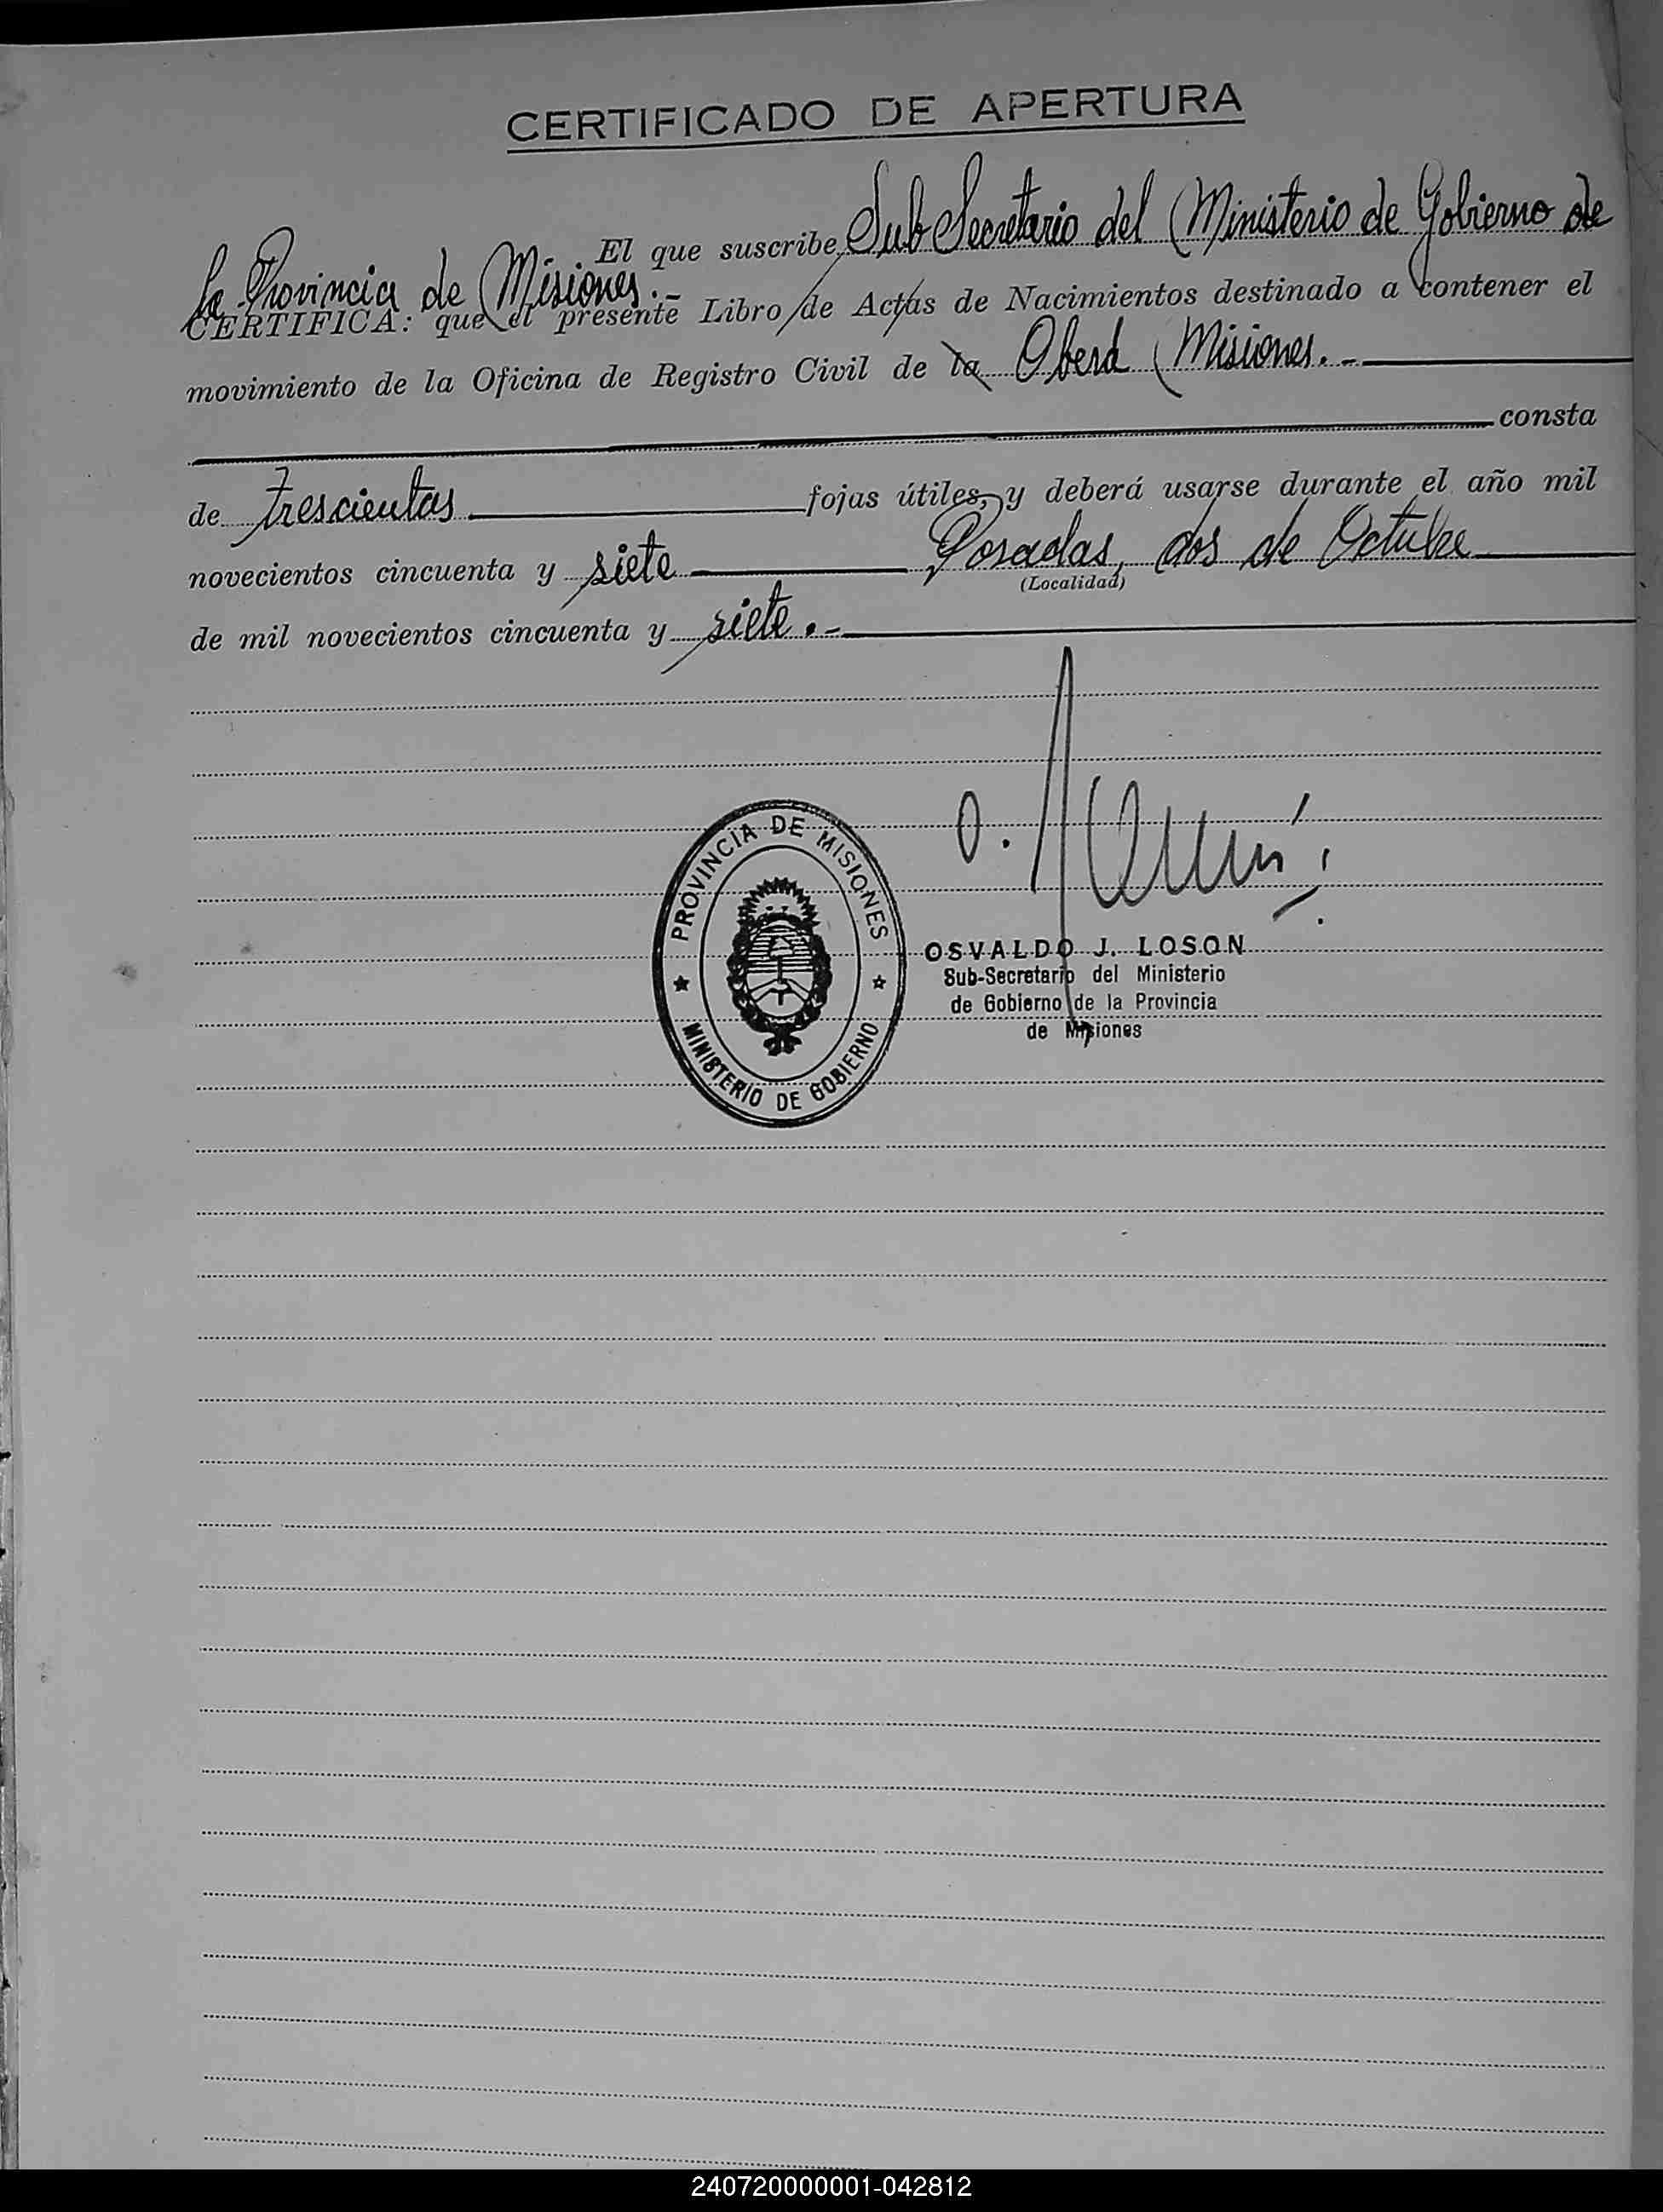 CERTIFICADO DE APERTURA
El que suscribe, Sub Secretario del Ministerio de Gobierno de
la Provincia de Misiones.-
CERTIFICA: que el presente Libro de Actas de Nacimientos destinado a contener el
movimiento de la Oficina de Registro Civil de la Oberá Misiones.-
consta
de trescientas fojas útiles, y deberá usarse durante el año mil
novecientos cincuenta y siete Posadas, dos de Octubre
(Localidad)
de mil novecientos cincuenta y siete.-
PROVINCIA DE MISIONES
MINISTERIO DE GOBIERNO
OSVALDO J. LOSON
Sub-Secretario del Ministerio
de Gobierno de la Provincia
de Misiones
240720000001-042812